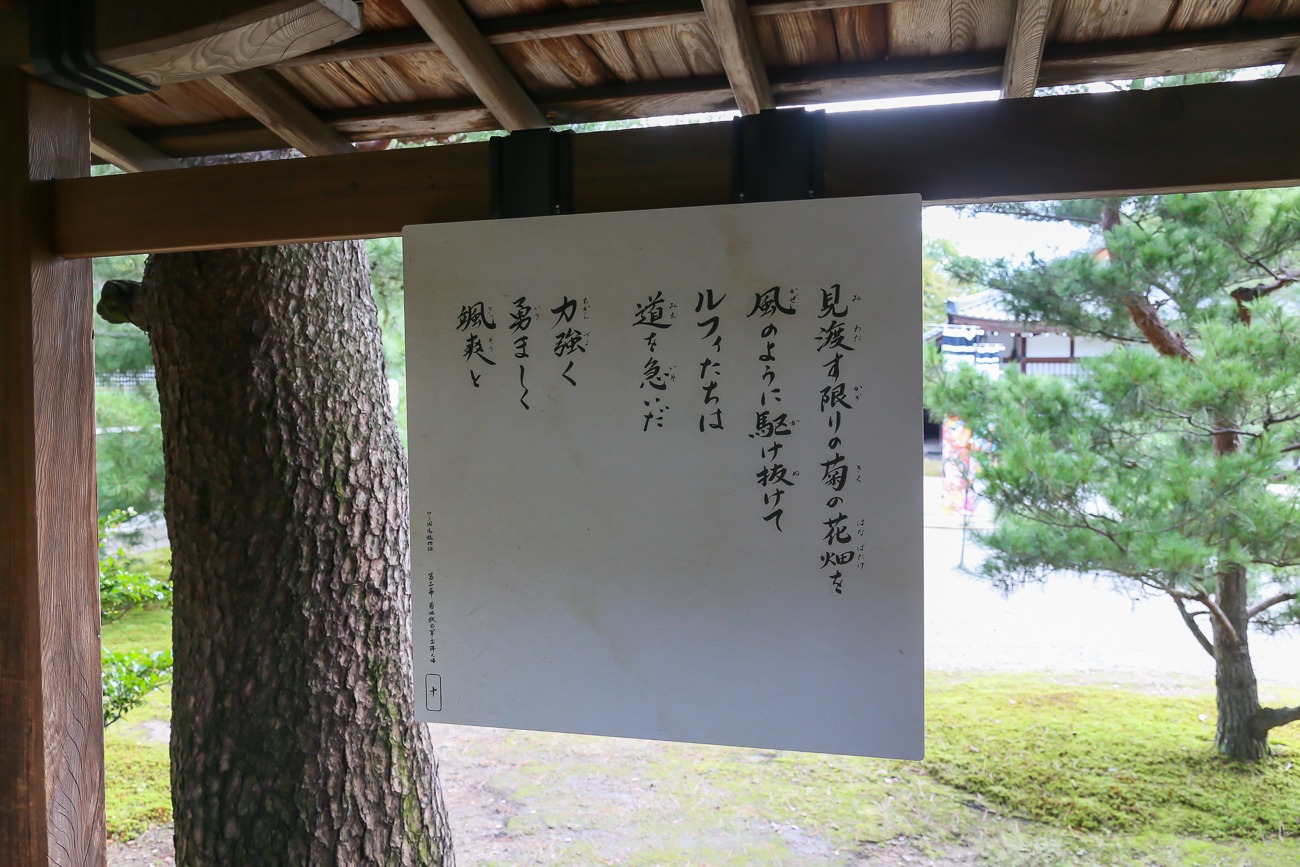 見渡す限りの菊の花畑を
風のように駆け抜けて
ルフィたちは
道を急いだ
力強く
勇ましく
颯爽と
十